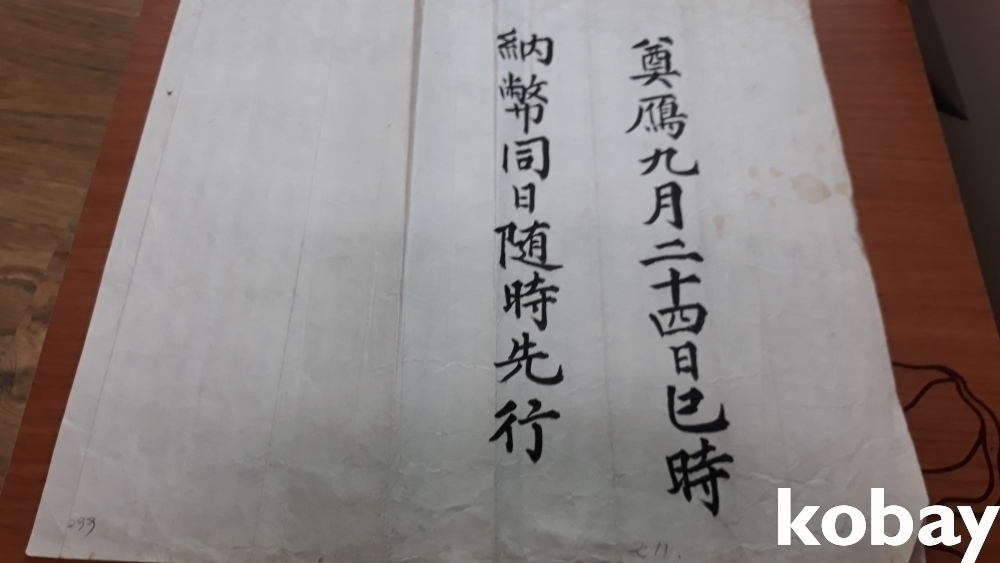 奠鴈九月二十四日巳時
納幣同日随時先行
299
kobay